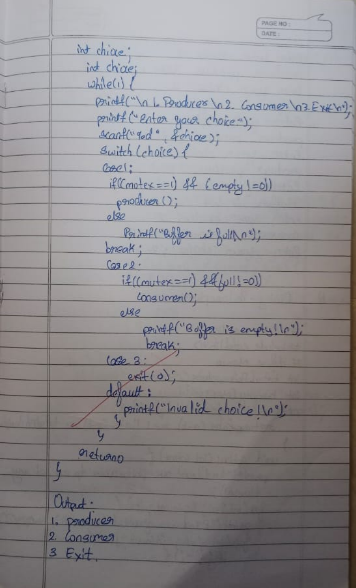 PAGE NO:
DATE:
int choice;
int choice;
while(1) {
printf("\n 1. Producer \n 2. Consumer \n 3. Exit \n");
printf("Enter your choice");
scanf("%d", &choice);
switch (choice) {
case 1:
if((mutex==1) && (empty!=0))
producer();
else
Printf("Buffer is full\n");
break;
Case 2:
if((mutex==1) && (full!=0))
consumer();
else
printf("Buffer is empty!\n");
break;
Case 3:
exit(0);
default:
printf("Invalid choice!\n");
}
}
return 0
}
Output.
1. producer
2. Consumer
3 Exit.